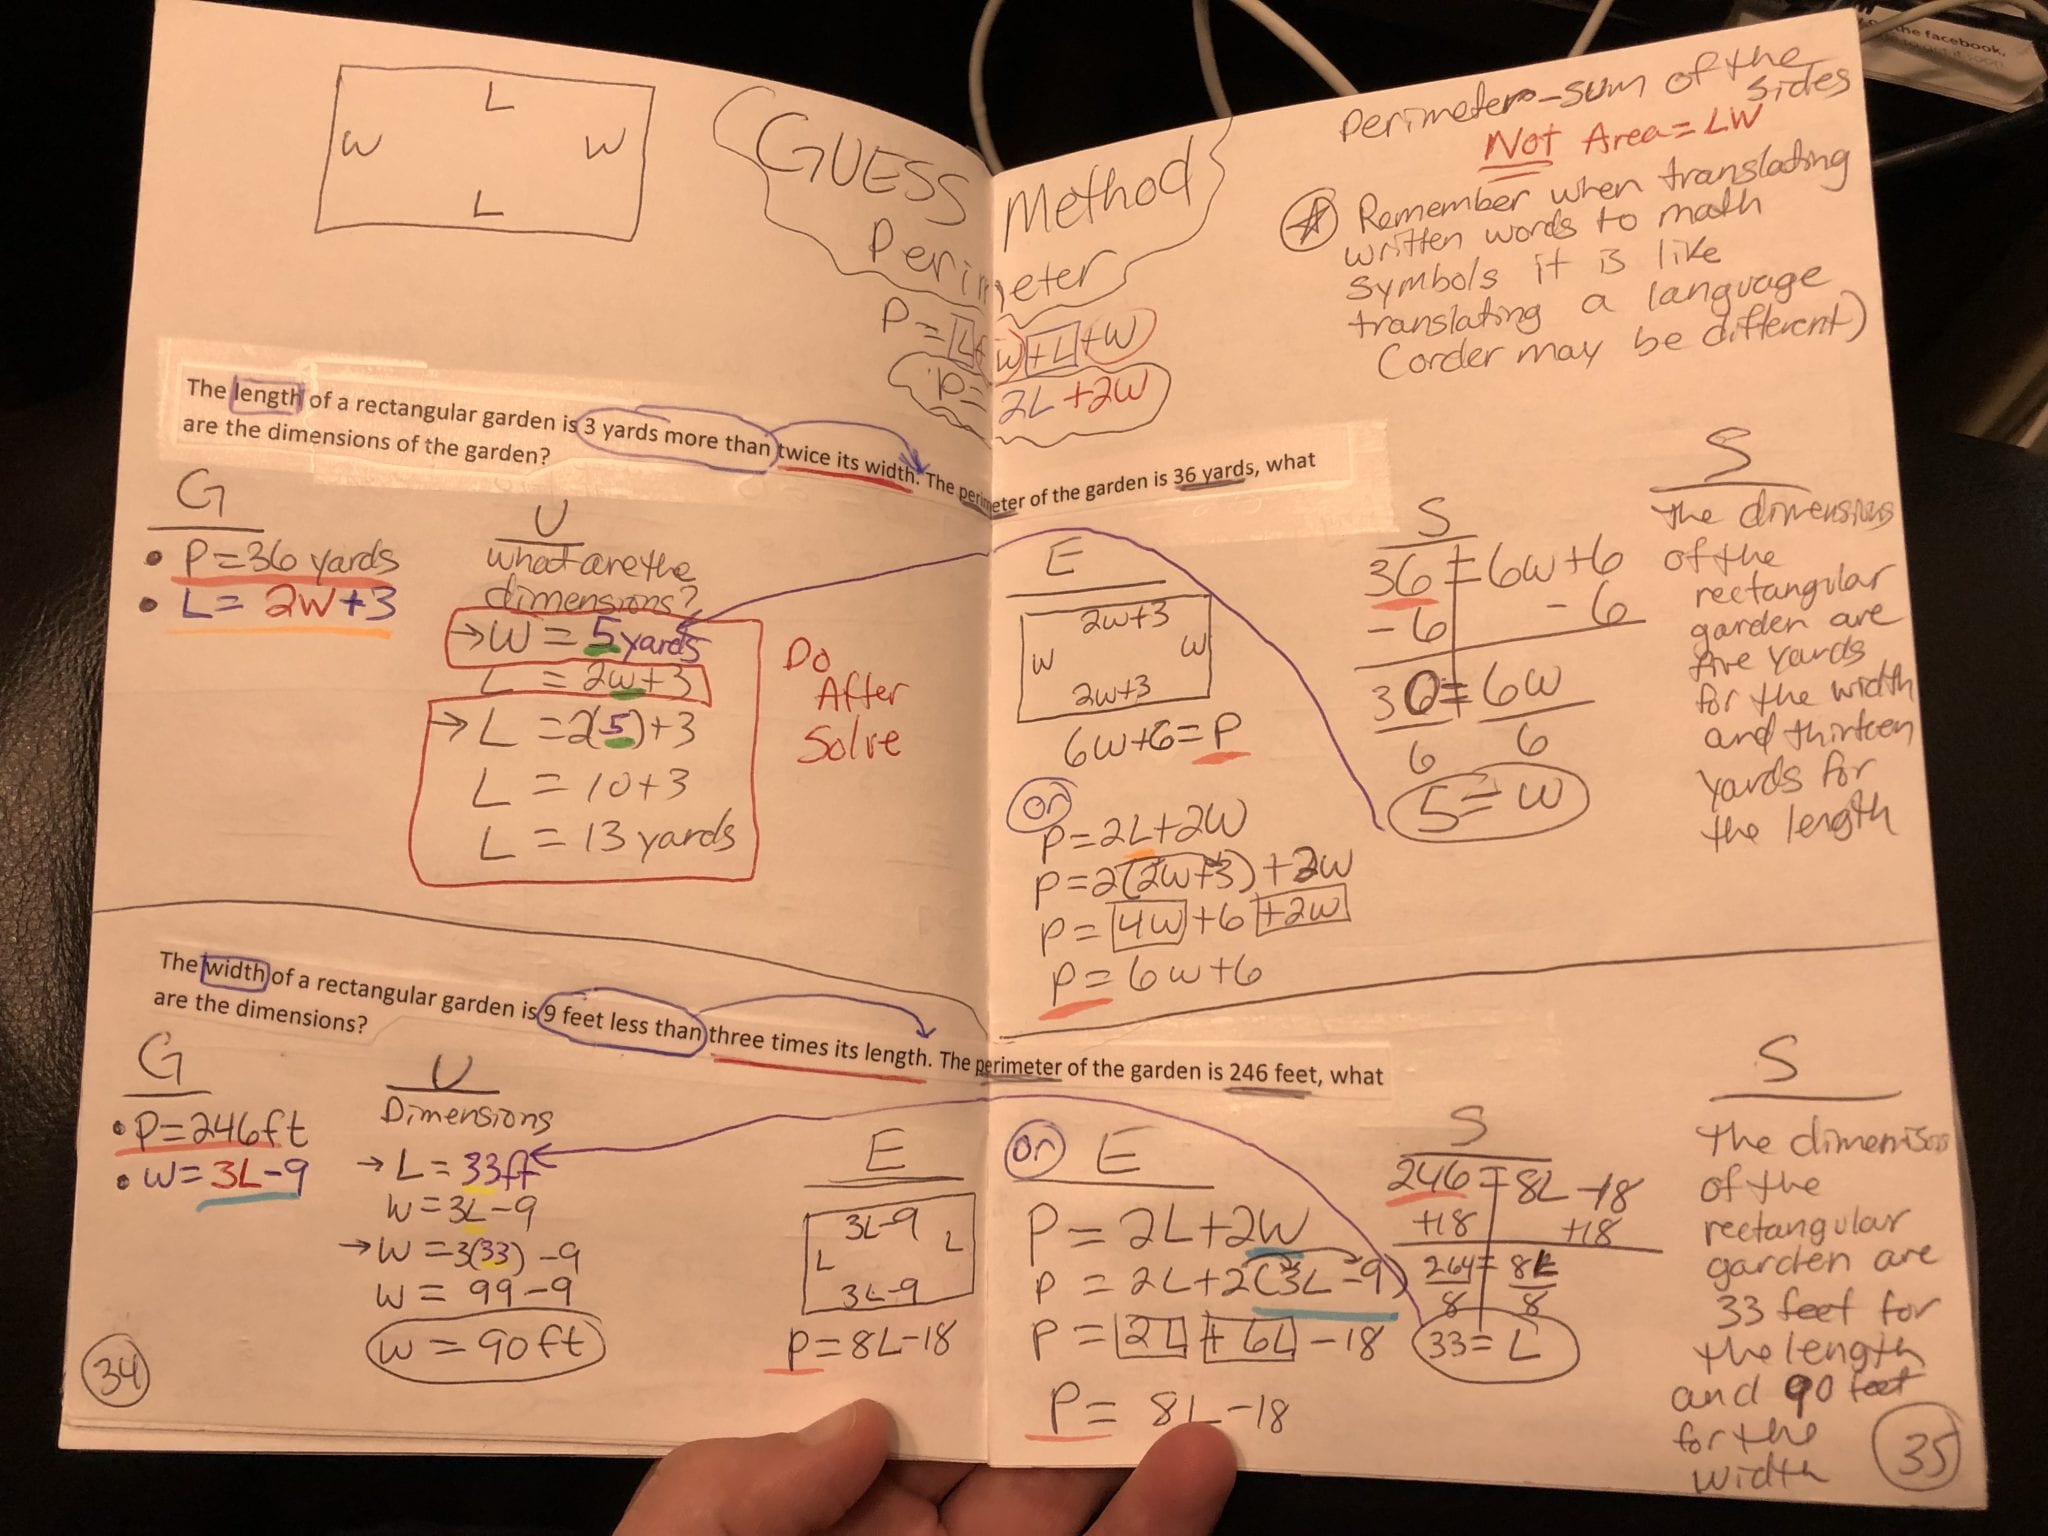 L
W W
L
GUESS Method
Perimeter
P=L+W+L+W
P=2L+2W
Perimeter-sum of the
sides
Not Area=LW
Remember when translating
written words to math
symbols it is like
translating a language
(order may be different)
The length of a rectangular garden is 3 yards more than twice its width. The perimeter of the garden is 36 yards, what
are the dimensions of the garden?
G
• P=36 yards
• L= 2W+3
U
what are the
dimensions?
→W = 5 yards
L = 2w+3
→ L =2(5)+3
L = 10+3
L = 13 yards
Do
After
Solve
E
2w+3
W W
2w+3
6w+6=P
or
P=2L+2W
P=2(2w+3)+2w
P=4W+6+2W
P=6w+6
S
36=6w+6
-6 -6
30=6W
6 6
5=W
S
The dimensions
of the
rectangular
garden are
five yards
for the width
and thirteen
yards for
the length
The width of a rectangular garden is 9 feet less than three times its length. The perimeter of the garden is 246 feet, what
are the dimensions?
G
• P=246ft
• W=3L-9
U
Dimensions
→ L = 33ft
W=3L-9
→W =3(33)-9
W = 99-9
W = 90ft
E
3L-9
L L
3L-9
P=8L-18
or E
P= 2L+2W
P = 2L+2(3L-9)
P=2L+6L-18
P= 8L-18
S
246=8L-18
+18 +18
264=8L
8 8
33=L
S
The dimenisons
of the
rectangular
garden are
33 feet for
the length
and 90 feet
for the
width
34
35
the facebook,